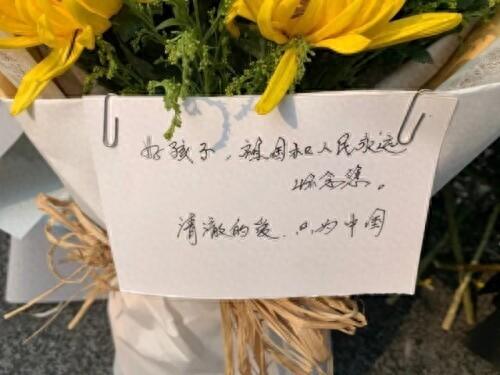 好孩子，祖国和人民永远
怀念您。
清澈的爱，只为中国